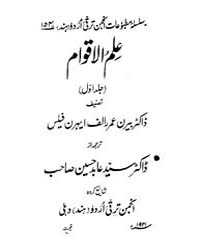 سلسلہ مطبوعات انجمن ترقی اردو (ہند) ۱۵۴
علم الاقوام
(جلد اول)
تصنیف
ڈاکٹر بیرن عمر رالف ایہرن فیلس
ترجمہ از
ڈاکٹر سید عابد حسین صاحب
شایع کردہ
انجمن ترقی اردو (ہند) دہلی